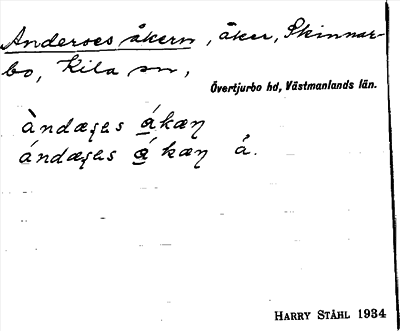 Anderses åkern, åker, Skinnar-
bo, Kila sn,
Övertjurbo hd, Västmanlands län.
àndæꞩas ákæŋ
ándæꞩas ákæŋ å.
HARRY STÅHL 1934